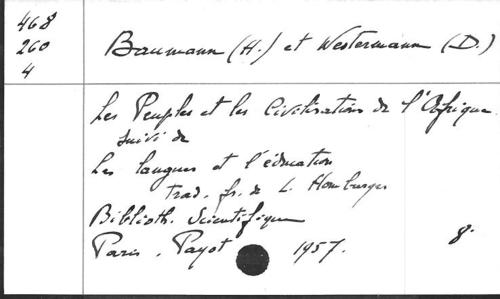 468
260
4
Baumann (H.) et Westermann (D.)
Les Peuples et les Civilisations de l'Afrique
suivi de
Les langues et l'éducation
trad. fr. de L. Homburger
Biblioth. Scientifique
Paris. Payot 1957. 8°